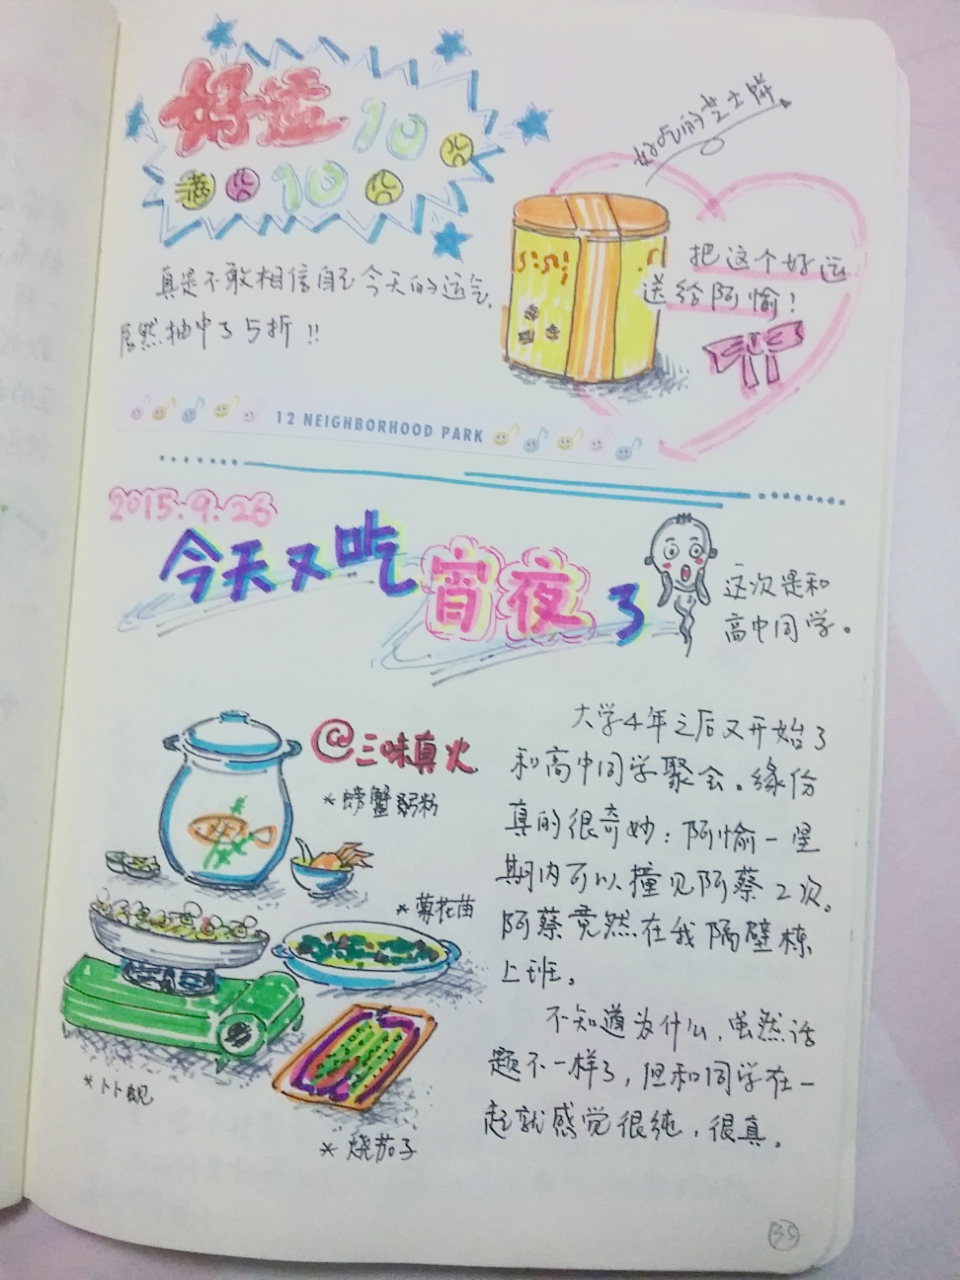 好运10
满10
好吃的芝士饼
真是不敢相信自己今天的运气,
居然抽中了5折!!
把这个好运
送给阿愉!
12 NEIGHBORHOOD PARK
2015.9.26
今天又吃宵夜了
这次是和
高中同学。
@三味真火
*螃蟹粥粉
*葡花苗
*卜卜蚬
*烧茄子
大学4年之后又开始了
和高中同学聚会。缘份
真的很奇妙:阿愉一星
期内可以撞见阿蔡2次。
阿蔡竟然在我隔壁栋
上班。
不知道为什么,虽然话
题不一样了,但和同学在一
起就感觉很纯,很真。
35